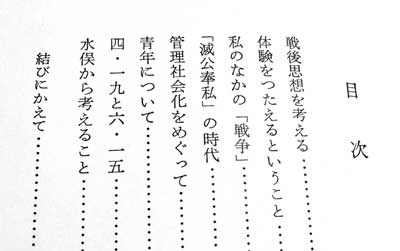 目次
戦後思想を考える………
体験をつたえるということ………
私のなかの「戦争」………
「滅公奉私」の時代………
管理社会化をめぐって………
青年について………
四・一九と六・一五………
水俣から考えること………
結びにかえて………